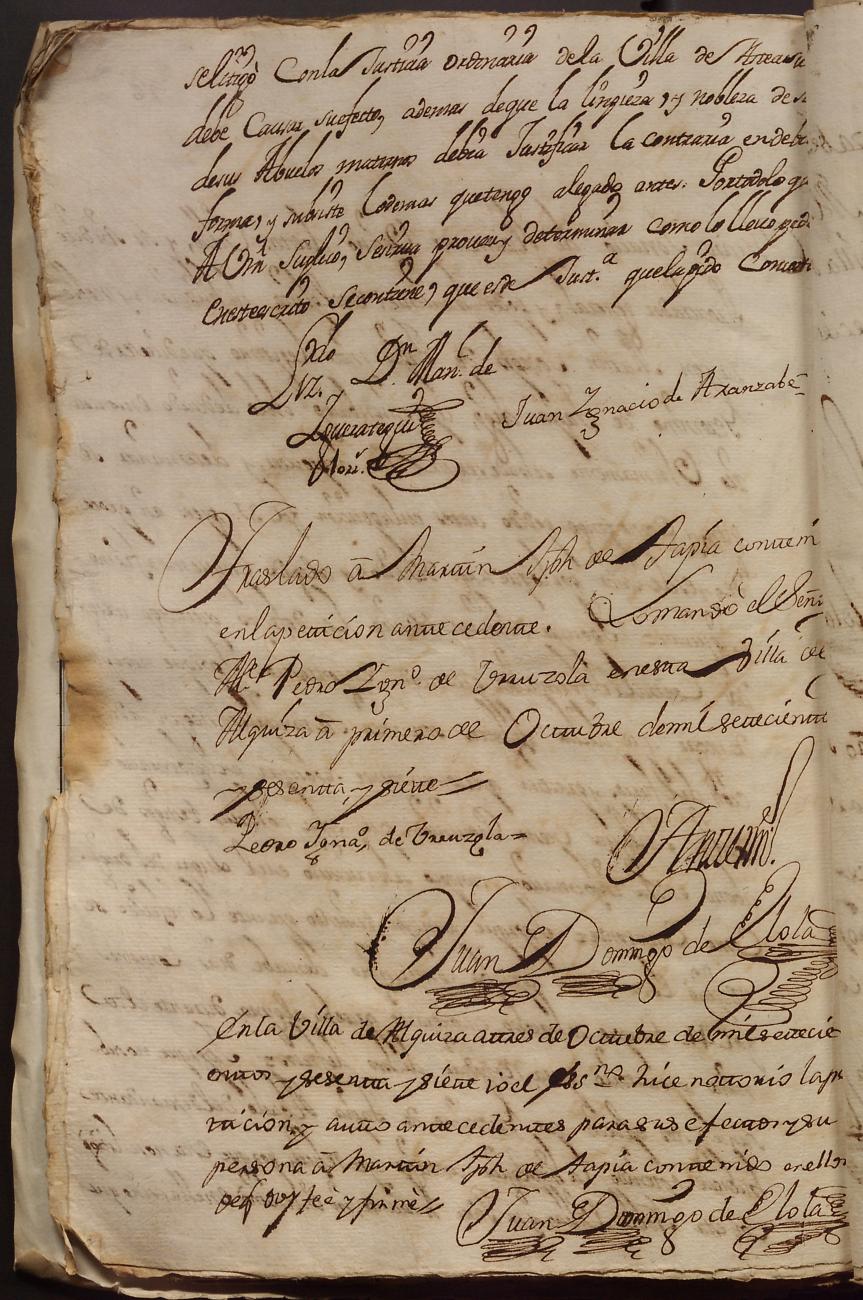 se litigò con la Justicia ordinaria de la Villa de
debe causar su efecto, ademas de que la limpieza, y nobleza de
de sus Abuelos maternos debia Justificar la contraria en
forma, y subsiste lo demas que tengo alegado antes. Por todo lo
A Vm suplico, se sirva proveer, y determinar como lo llevo
en este escrito se contiene, que es de Just.a que la pido
Lizdo Dn Manl de
Juan Ygnacio de Aranzabe
Traslado â Martin Jph de Tapia conten
en la peticion antecedente. Lo mandò el Señ
Alce Pedro Ygno de Vrruzola en esta Villa de
Alquiza â primero de Octubre de mil settecientt
y sesentta, y siétte
Pedro Ygnao, de Vrruzola
Antemi
Juan Domingo de Elola
En la Villa de Alquiza a ttres de Octubre de mil settecie
enttos y sesentta y siette io el Essno hice nottorio la pe
tticion, y autto antecedentes para sus efecttos y su
persona â Marttin Jph de Tapia conttenido en ellos
de q doy feè y firmè
Juan Domingo de Elola